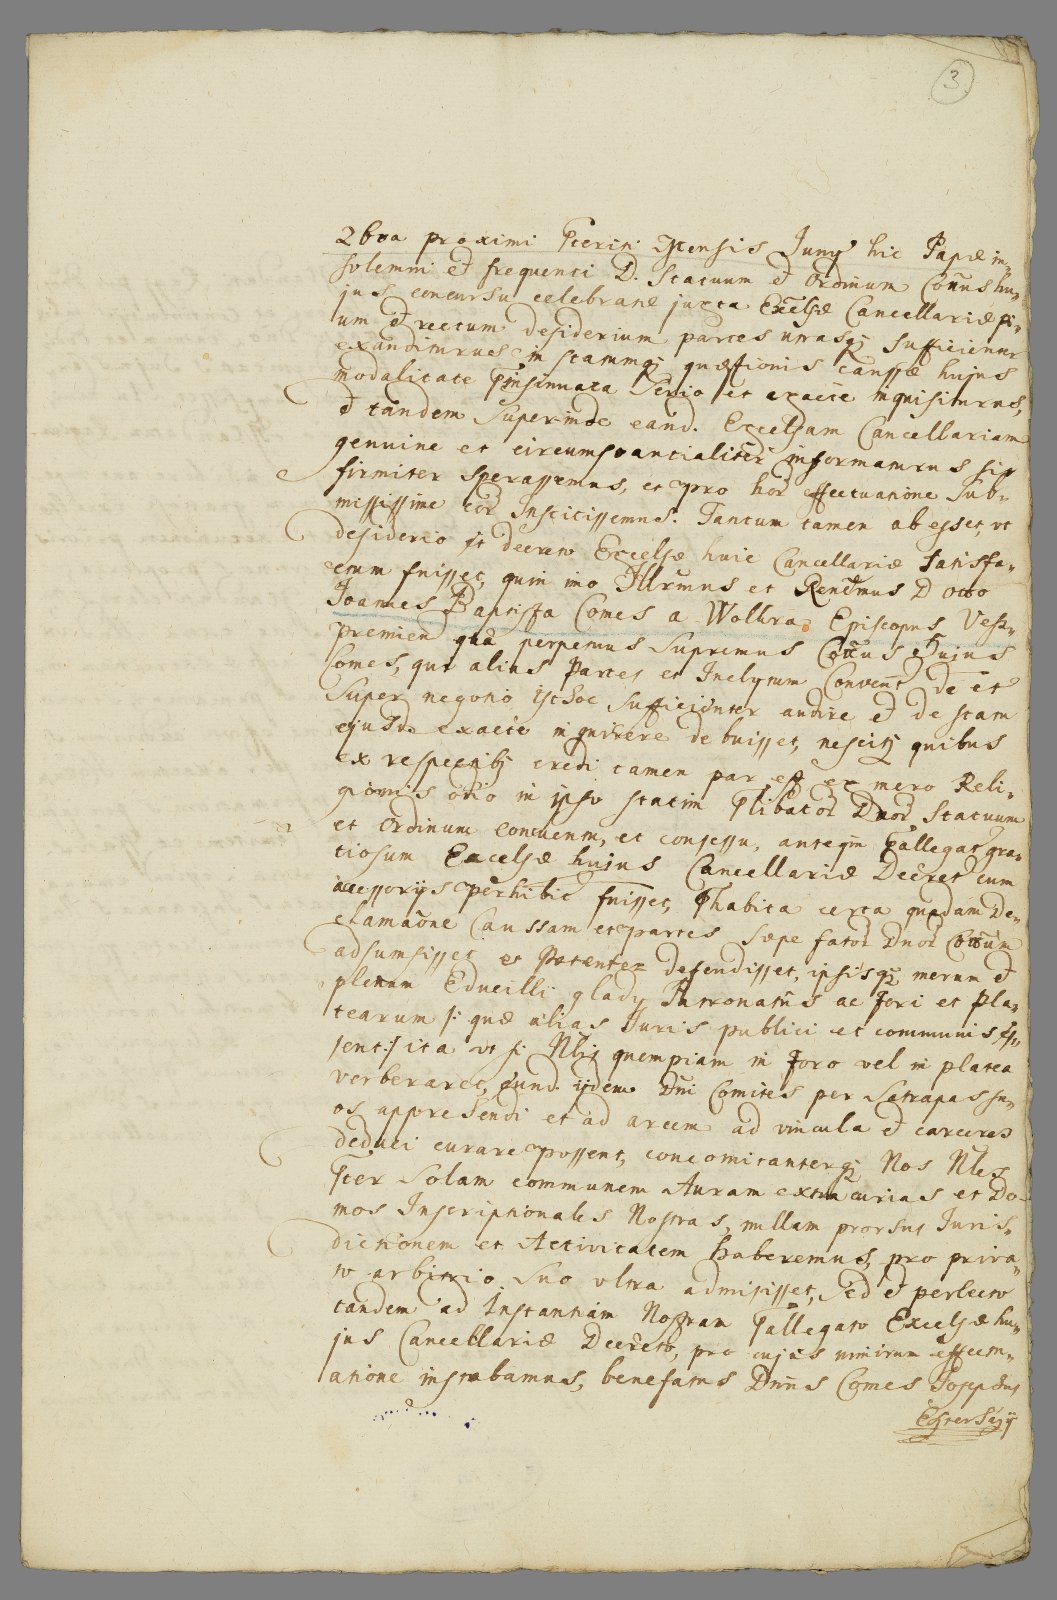 3
26ta proximi Pteriti Mensis Juny hic Papæ in
solemni et frequenti D. Statuum et Ordinum Cottus hu-
jus concursu celebranæ juxta Excelsæ Cancellariæ pi-
um et rectum desiderium partes utrasq sufficienter
exauditurus, in stammq quæstionis caussæ hujus
modalitate Ptinsinuata Serio et exacte inquisiturus,
et tandem superinde eand. Excelsam Cancellariam
genuine et circumstantialiter informaturus sic
firmiter sperassemus, et pro hoc effectuatione Sub-
missime institissemus. Tantum tamen abesset, ut
desiderio et decreto Excelsæ huic Cancellariæ satisfa-
ctum fuisset, quin imo Illrmus et Rendmus D otto
Joannes Baptista Comes a Wolkra Episcopus Vesz-
premien qua perpetuus Supremus Cottus hujus
Comes, qui alius Partes et Inclytum Convent de et
super negotio isthoc sufficienter audire et de stam
ejusd. exacte inquirere debuisset, nescitq quibus
ex respectibq credi tamen par est ex mero Reli-
gionis odio in ipso statim Ptlibator Dnor Statuum
et Ordinum conventu, et consessu, anteqm Ptallegat gra-
tiosum Excelsæ hujus Cancellariæ Decret cum
accessorijs perhibit fuisset, Pthabita certa quadam De-
clamaone Caussam et partes sæpe fator Dnor Cottum
adsumsisset et Patenter defendisset, ipsisq merum et
plenum Educilli glady Patronatus ac Fori et Pla-
tearum /: quæ alias Juris publici et communis es-
sent :/ ita ut si Nblq quempiam in Foro vel in platea
verberaret, eund. ijdem Dni Comites per Satrapas su-
os apprehendi et ad arcem ad vincula et carceres
deduci curare possent, concomitanterq Nos Nbles
Pter solam communem Auram extra curias et Do-
mos Inscriptionales Nostras, nullam prorsus Juris-
dictionem et Activitatem haberemus, pro priva-
to arbitrio suo ultra admisisset, Sed et perlecto
tandem ad Instantiam Nostram Ptallegato Excelsæ hu-
jus Cancellariæ Decreto, pro cujus nimirum effectu-
atione instabamus, benefatus Dnus Comes Josephus
Eszterházÿ